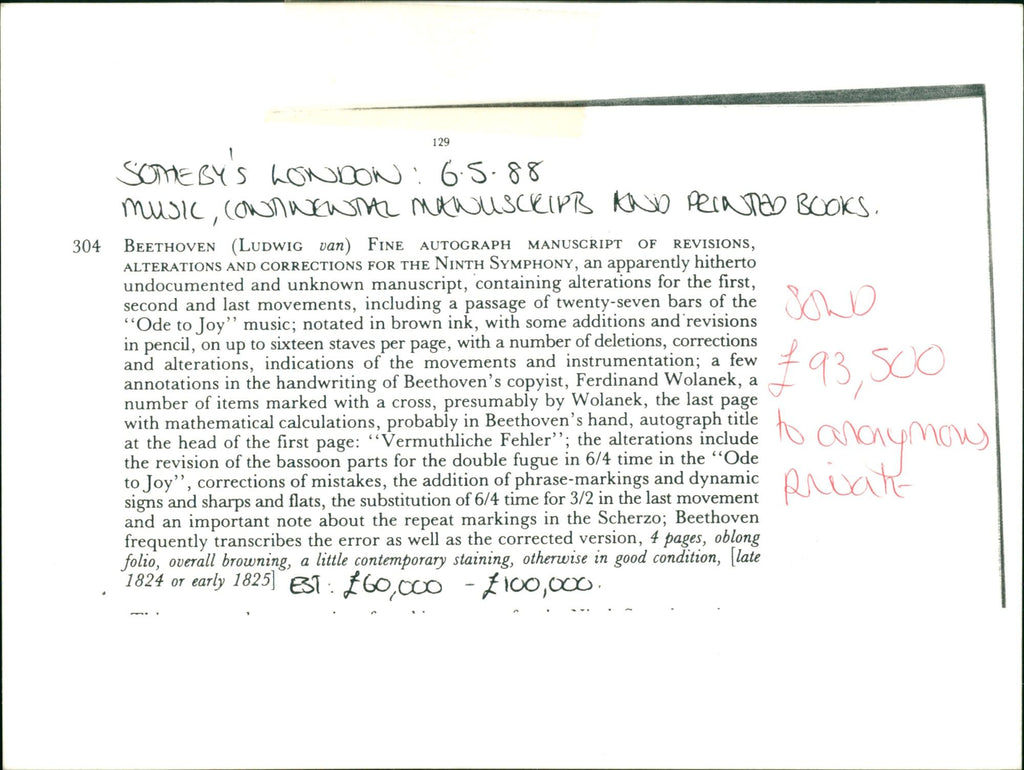 129
SOTHEBY'S LONDON: 6.5.88
MUSIC, CONTINENTAL MANUSCRIPTS AND PRINTED BOOKS.
304 BEETHOVEN (LUDWIG van) FINE AUTOGRAPH MANUSCRIPT OF REVISIONS,
ALTERATIONS AND CORRECTIONS FOR THE NINTH SYMPHONY, an apparently hitherto
undocumented and unknown manuscript, containing alterations for the first,
second and last movements, including a passage of twenty-seven bars of the
“Ode to Joy” music; notated in brown ink, with some additions and revisions
in pencil, on up to sixteen staves per page, with a number of deletions, corrections
and alterations, indications of the movements and instrumentation; a few
annotations in the handwriting of Beethoven's copyist, Ferdinand Wolanek, a
number of items marked with a cross, presumably by Wolanek, the last page
with mathematical calculations, probably in Beethoven's hand, autograph title
at the head of the first page: “Vermuthliche Fehler”; the alterations include
the revision of the bassoon parts for the double fugue in 6/4 time in the “Ode
to Joy”, corrections of mistakes, the addition of phrase-markings and dynamic
signs and sharps and flats, the substitution of 6/4 time for 3/2 in the last movement
and an important note about the repeat markings in the Scherzo; Beethoven
frequently transcribes the error as well as the corrected version, 4 pages, oblong
folio, overall browning, a little contemporary staining, otherwise in good condition, [late
1824 or early 1825] EST: £60,000 - £100,000.
SOLD
£93,500
to anonymous
private